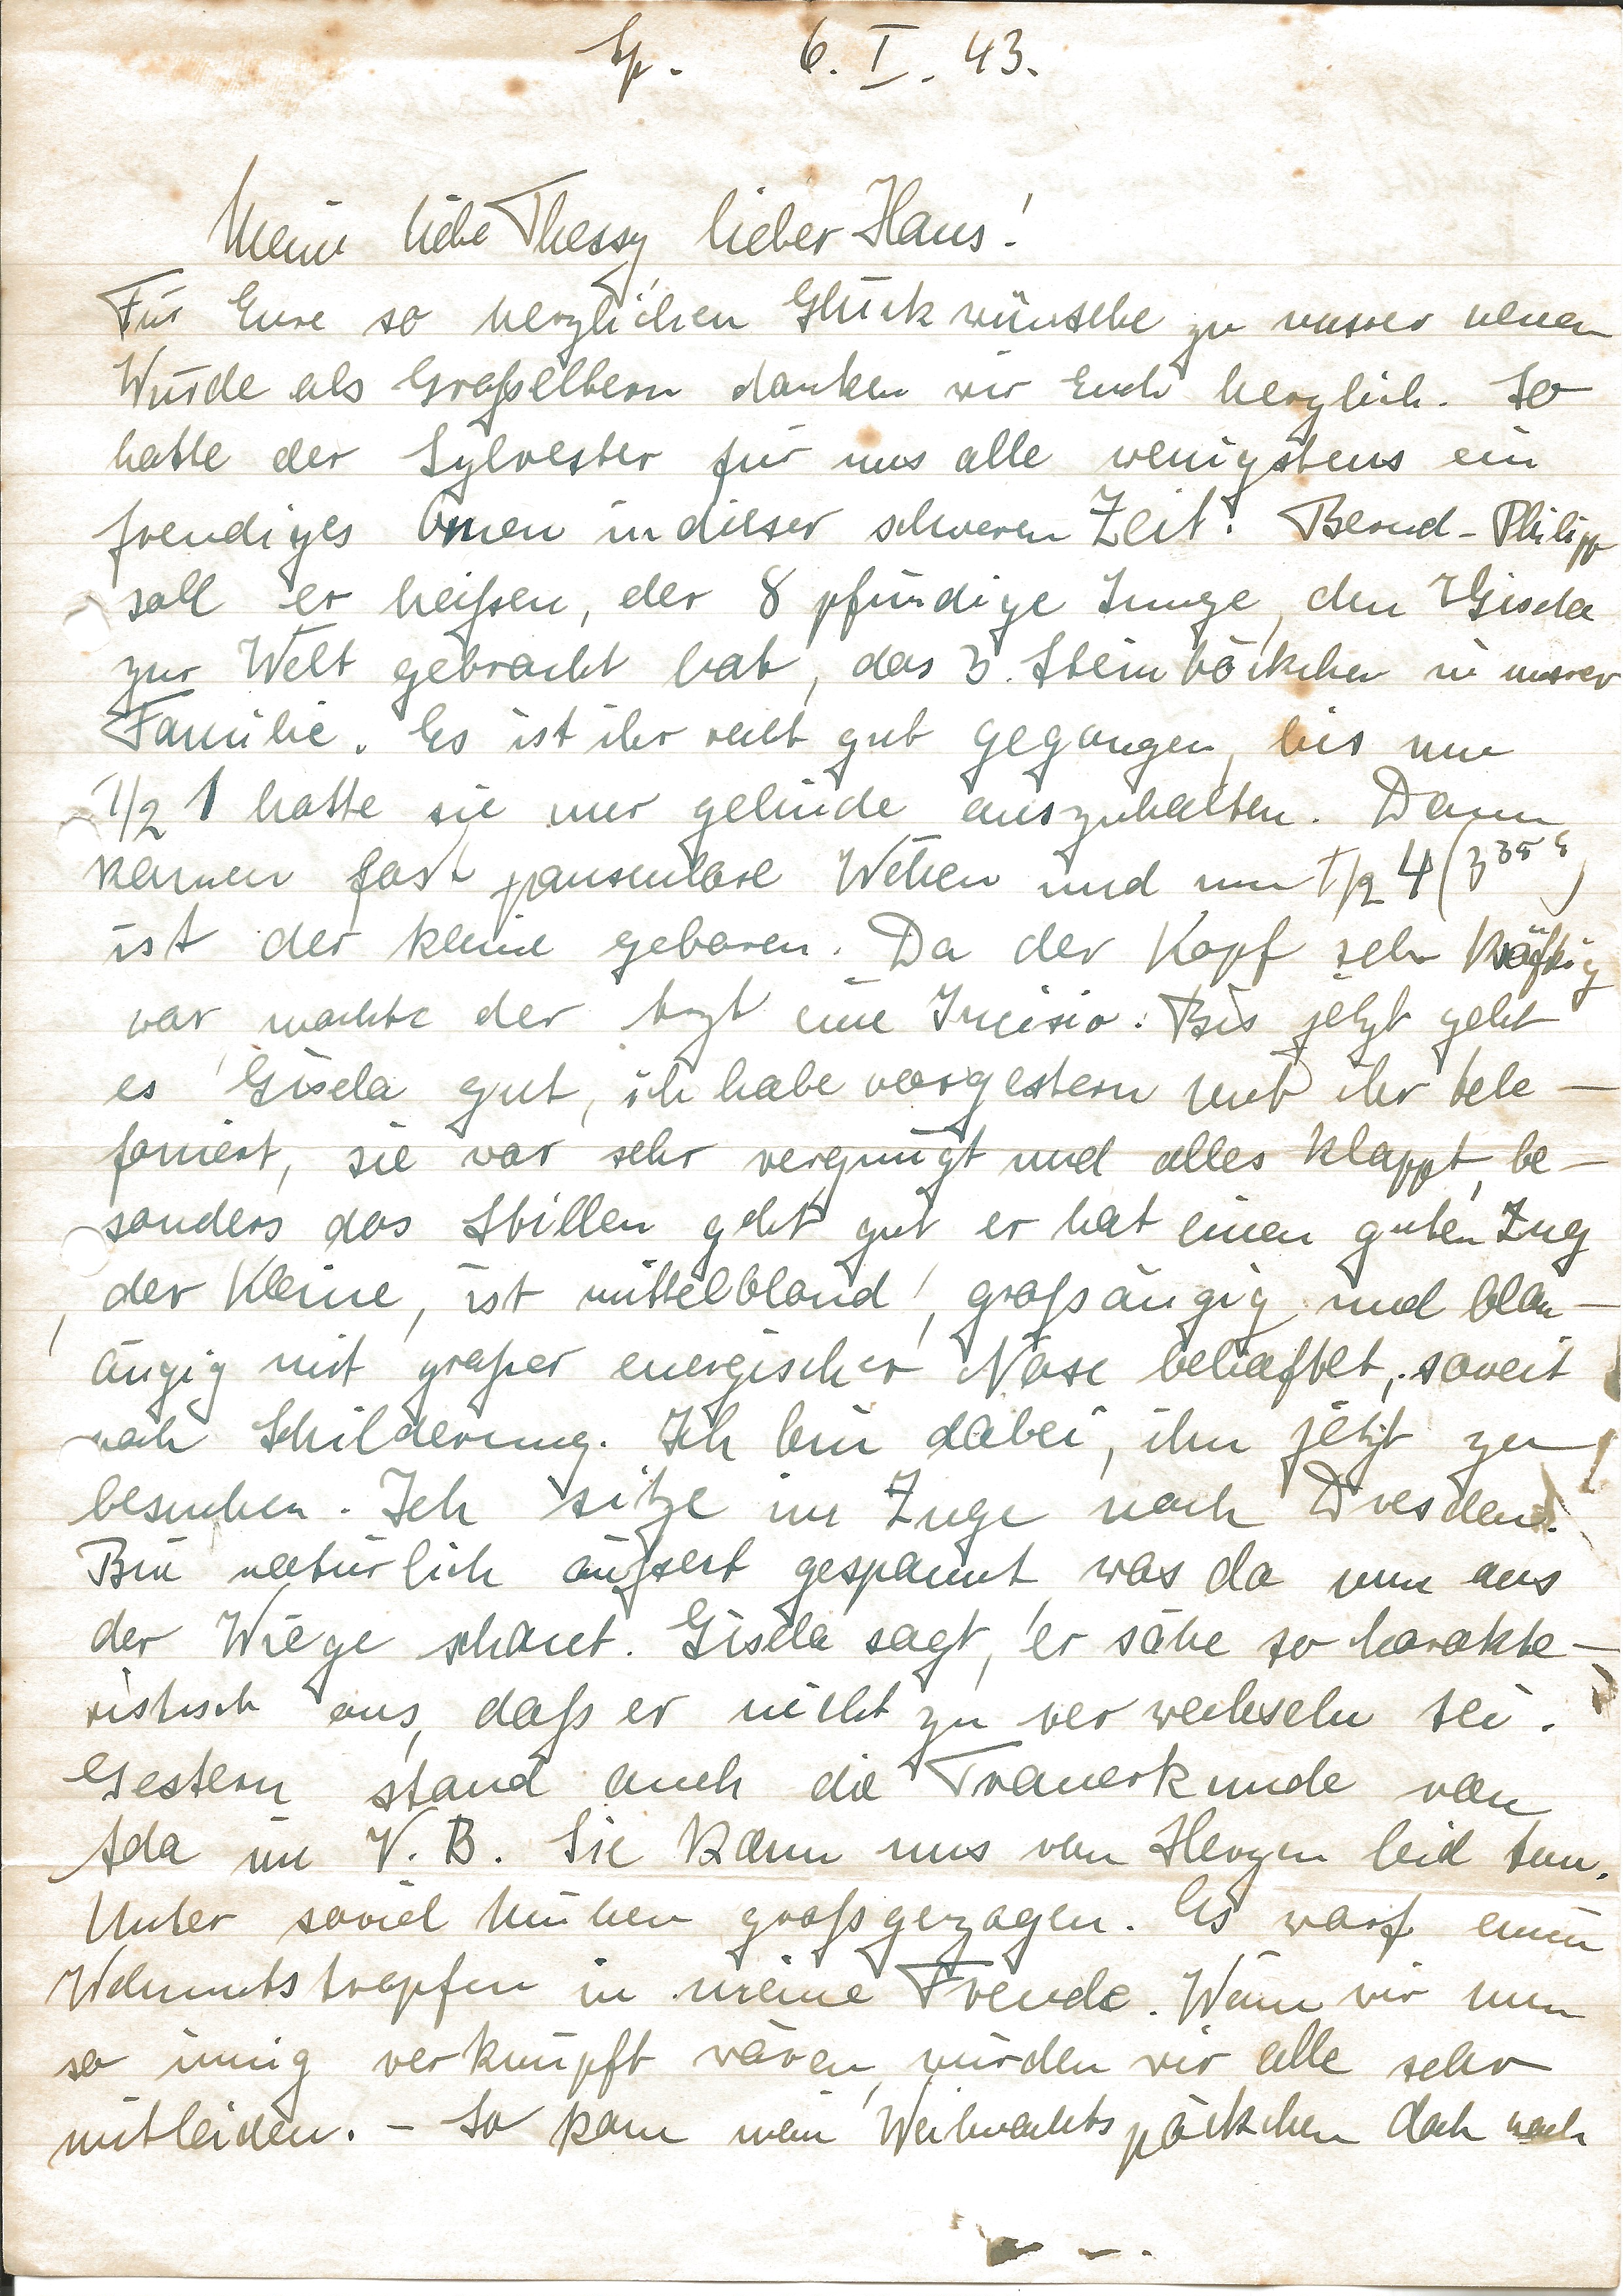 Sp. 6. I. 43.
Meine liebe Thessy, lieber Hans!
Für Eure so herzlichen Glückwünsche zu unsrer neuen
Würde als Großeltern danken wir Euch herzlich. So
hatte der Sylvester für uns alle wenigstens ein
freudiges Omen in dieser schweren Zeit. Bernd-Philipp
soll er heißen, der 8 pfündige Junge, den Gisela
zur Welt gebracht hat, das 3. Steinböckchen in unsrer
Familie. Es ist ihr recht gut gegangen, bis um
1/2 1 hatte sie nur gelinde auszuhalten. Dann
kamen fast pausenlose Wehen und um 1/2 4 (3 35
ist der kleine geboren. Da der Kopf sehr kräftig
war, machte der Arzt eine Incisio. Bis jetzt geht
es Gisela gut, ich habe vorgestern mit ihr tele-
foniert, sie war sehr vergnügt und alles klappt, be-
sonders das Stillen geht gut er hat einen guten Zug
der Kleine, ist mittelblond, großäugig und blau-
äugig mit großer energischer Nase behaftet, soweit
nach Schilderung. Ich bin dabei, ihn jetzt zu
besuchen. Ich sitze im Zuge nach Dresden.
Bin natürlich äußert gespannt, was da nun aus
der Wiege schaut. Gisela sagt, er sähe so harakte-
ristisch aus, daß er nicht zu verwechseln sei.
Gestern stand auch die Trauerkunde von
Ada im V. B. Sie kann uns von Herzen leid tun.
Unter soviel Mühen großgezogen. Es warf einen
Wehmutstropfen in meine Freude. Wenn wir nun
so innig verknüpft wären, würden wir alle sehr
mitleiden. - So kam mein Weihnachtspäckchen doch nach